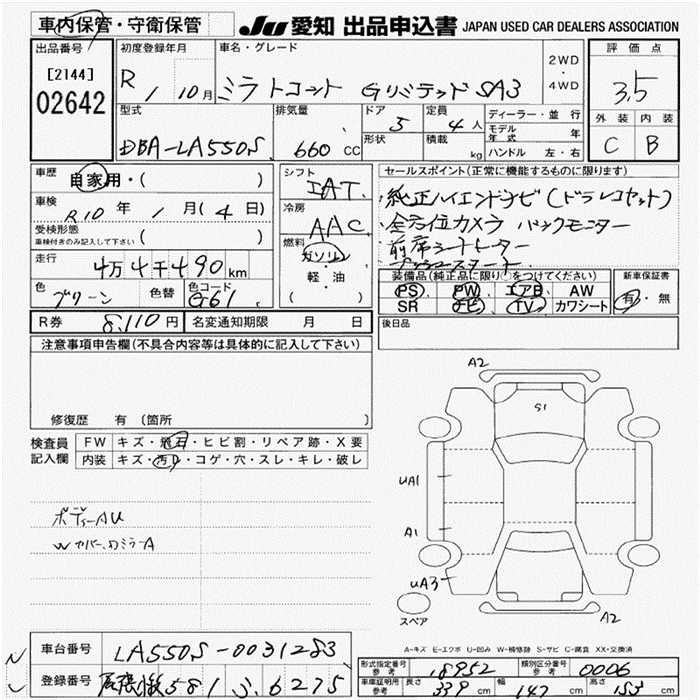 車内保管・守衛保管
JU 愛知 出品申込書 JAPAN USED CAR DEALERS ASSOCIATION
出品番号
[2144]
02642
初度登録年月
R 1 10月
車名・グレード
ミラトコット Gリミテッド SA3
2WD
・
4WD
評価点
3.5
外装 内装
C B
型式
DBA-LA550S
排気量
660 CC
ドア
5
形状
定員
4人
積載 kg
ディーラー・並行
モデル年式 年
ハンドル 左・右
車歴
自家用・( )
車検
R10年 1月(4日)
受検形態
車検付きのみ記入して下さい ( )
走行
4万4千490km
色
グリーン
色替
色コード
G61
シフト
IAT
冷房
AAC
燃料
ガソリン
・
軽・油
( )
セールスポイント(正常に機能するものに限ります)
純正ハイエンドナビ(ドラレコセット)
全方位カメラ バックモニター
前席シートヒーター
装備品(純正品に限り○をつけてください)
PS PW エアB AW
SR ナビ TV カワシート
新車保証書
有・無
後日品
R券 8,110円
名変通知期限 月 日
注意事項申告欄(不具合内容等は具体的に記入して下さい)
修復歴 有 (箇所
検査員
記入欄
FW キズ・飛石・ヒビ割・リペア跡・X要
内装 キズ・汚れ・コゲ・穴・スレ・キレ・破レ
ボディーAU
Wカバー、ドアミラーA
A2
S1
UA1
A1
UA3
A2
スペア
A-キズ E-エクボ U-凹み W-補修跡 S-サビ C-腐食 XX-交換済
車台番号 LA550S-0031283
登録番号 581 6275
形式指定番号 参考 18952
類別区分番号 参考 0006
車証証明用 参考 長さ 339 cm 幅 147 cm 高さ 153 cm